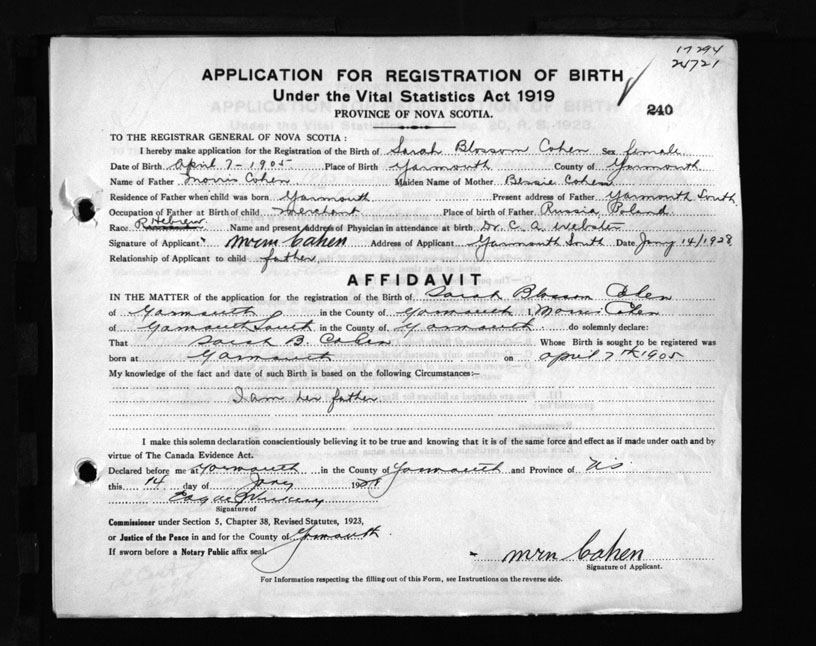 17294
25721
APPLICATION FOR REGISTRATION OF BIRTH
Under the Vital Statistics Act 1919
240
PROVINCE OF NOVA SCOTIA.
TO THE REGISTRAR GENERAL OF NOVA SCOTIA :
I hereby make application for the Registration of the Birth of Sarah Blossom Cohen Sex female
Date of Birth April 7 - 1905 Place of Birth Yarmouth County of Yarmouth
Name of Father Morris Cohen Maiden Name of Mother Bessie Cohen
Residence of Father when child was born Yarmouth Present address of Father Yarmouth South
Occupation of Father at Birth of child Merchant Place of birth of Father Russia Poland
Race Hebrew Name and present address of Physician in attendance at birth Dr. C. A. Webster
Signature of Applicant mrm Cahen Address of Applicant Yarmouth South Date Jany 14/1928
Relationship of Applicant to child father
AFFIDAVIT
IN THE MATTER of the application for the registration of the Birth of Sarah Blossom Cohen
of Yarmouth in the County of Yarmouth I, Morris Cohen
of Yarmouth South in the County of Yarmouth do solemnly declare:
That Sarah B. Cohen Whose Birth is sought to be registered was
born at Yarmouth on April 7th 1905
My knowledge of the fact and date of such Birth is based on the following Circumstances:—
I am her father
I make this solemn declaration conscientiously believing it to be true and knowing that it is of the same force and effect as if made under oath and by
virtue of The Canada Evidence Act.
Declared before me at Yarmouth in the County of Yarmouth and Province of NS
this 14 day of Jany 1928
Signature of
Commissioner under Section 5, Chapter 38, Revised Statutes, 1923,
or Justice of the Peace in and for the County of Yarmouth
If sworn before a Notary Public affix seal.
mrm Cahen
Signature of Applicant.
For Information respecting the filling out of this Form, see Instructions on the reverse side.